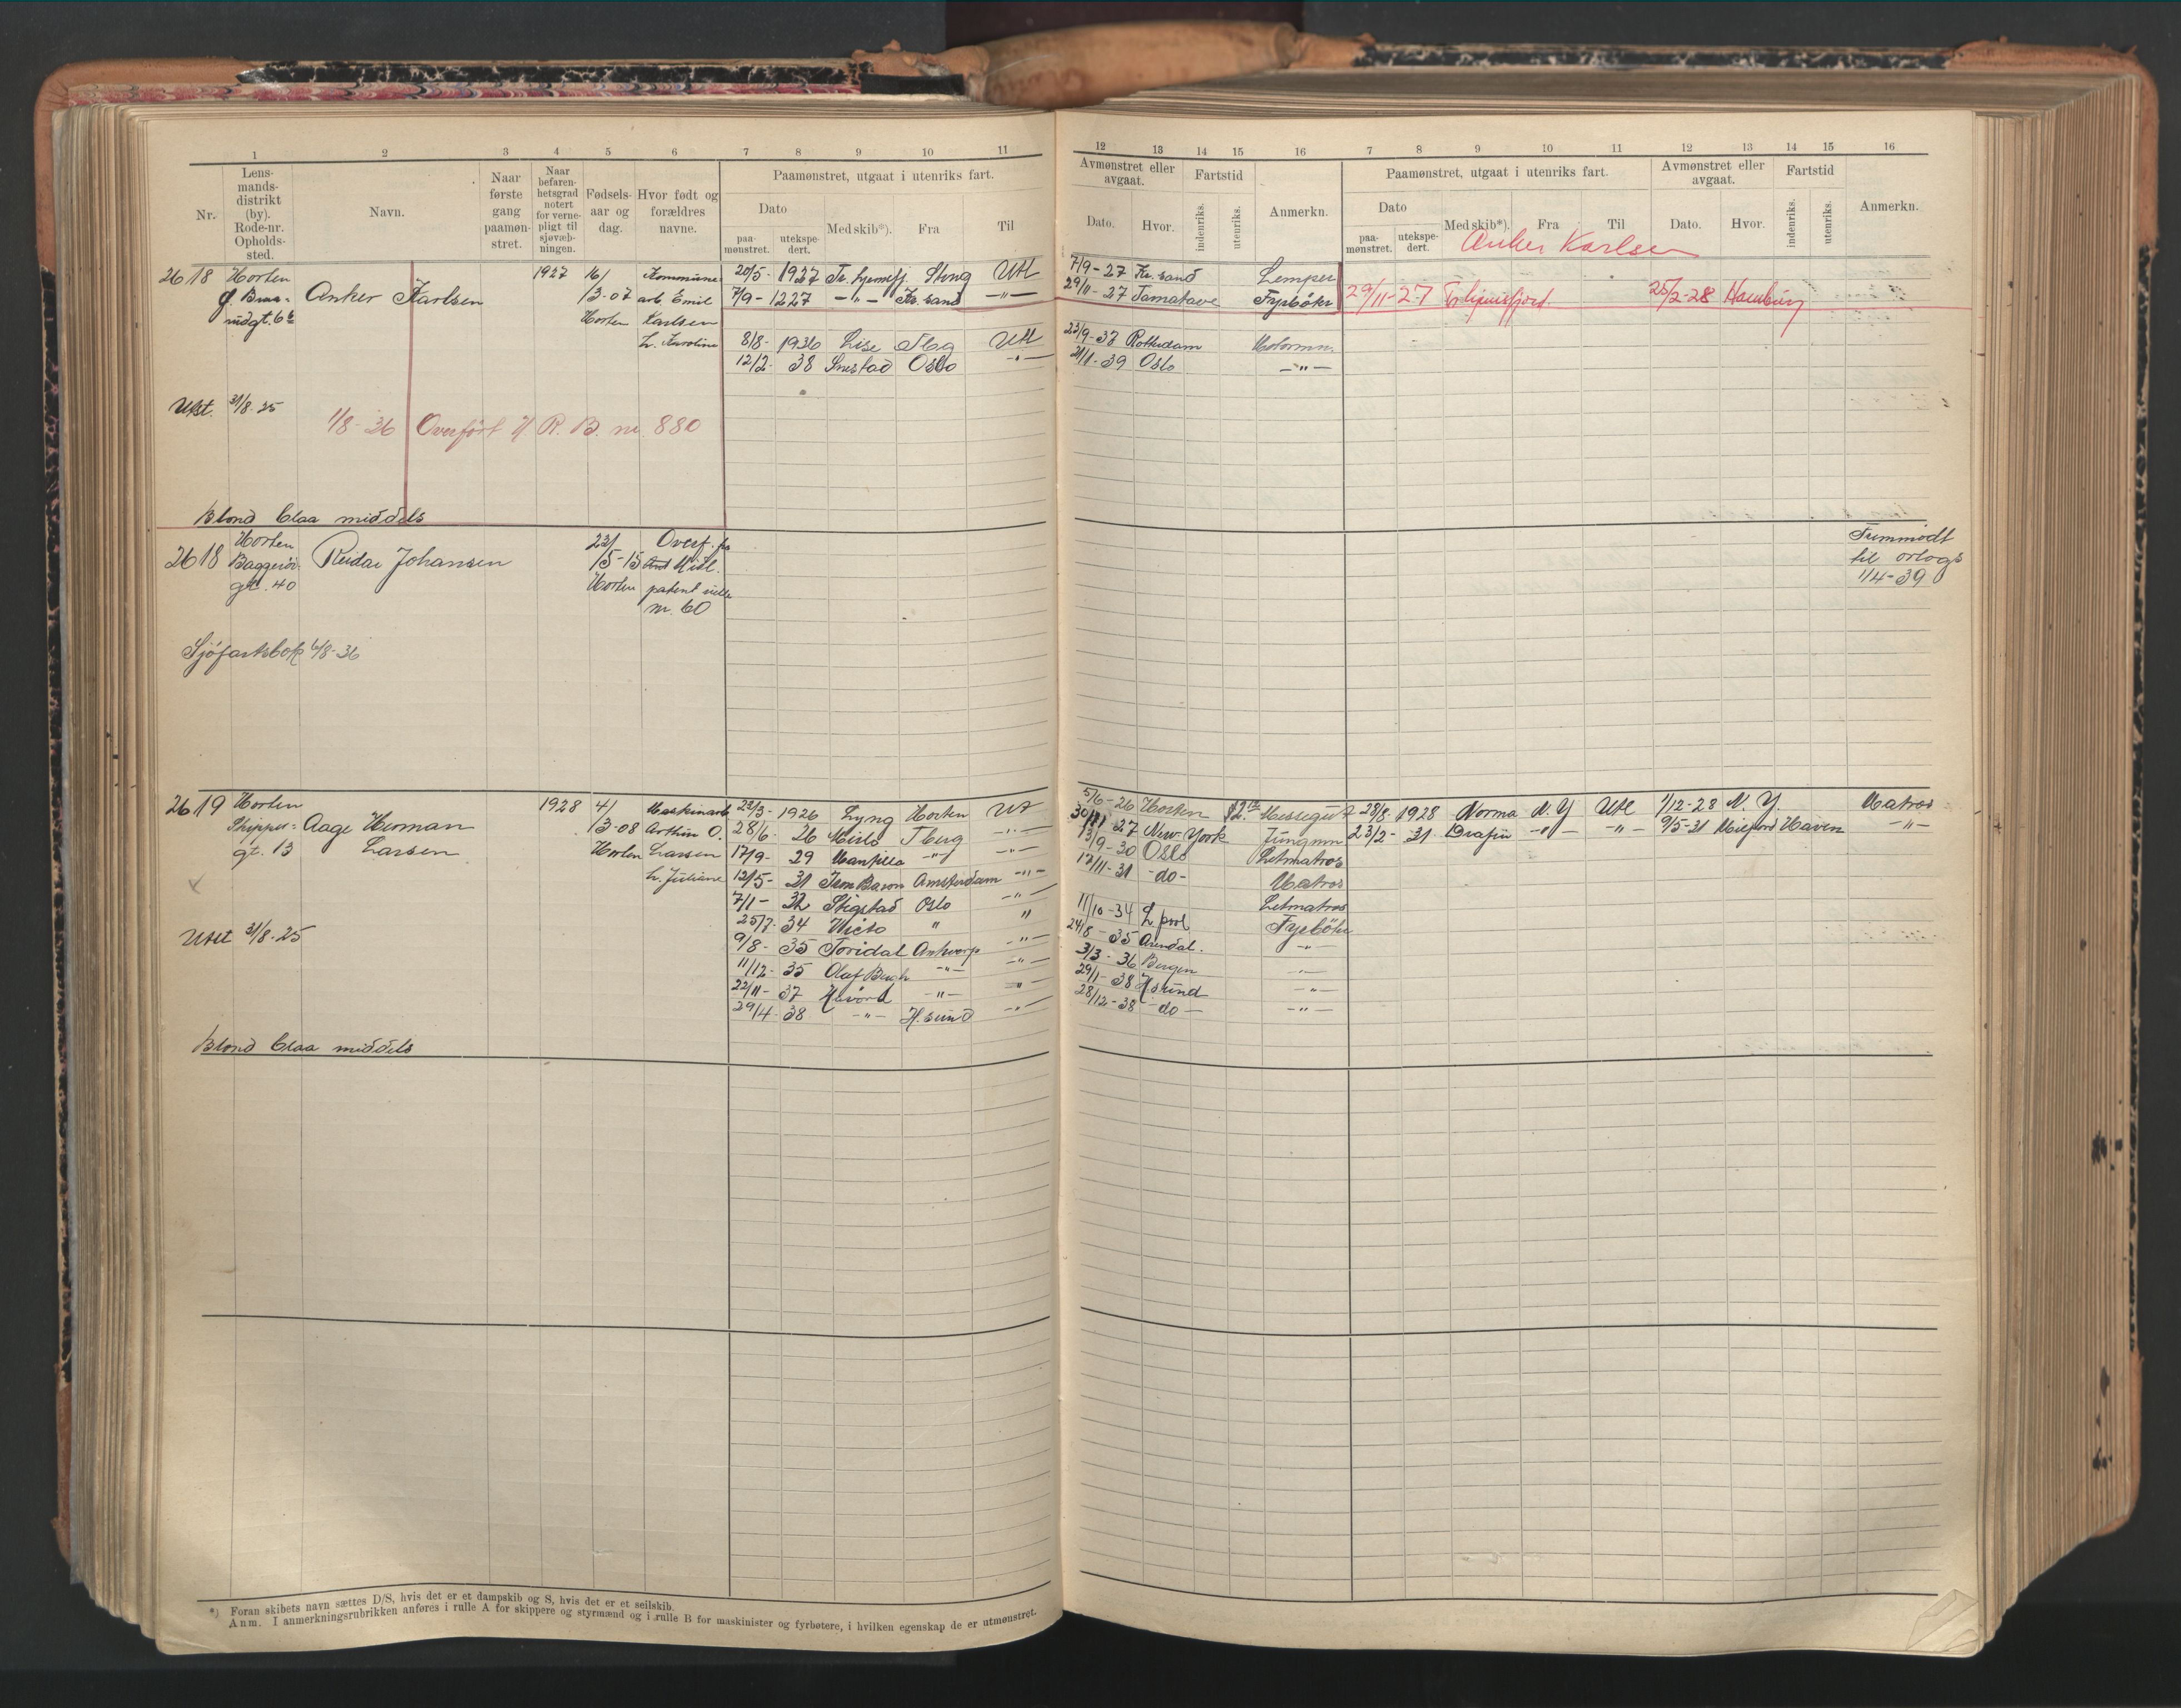 1 2 3 4 5 6 7 8 9 10 11
Nr. Lens-mands-distrikt (by). Rode-nr. Opholds-sted. Navn. Naar første gang paamøn-stret. Naar befaren-hetsgrad notert for verne-pligt til sjøvæb-ningen. Fødsels-aar og dag. Hvor født og forældres navne. Paamønstret, utgaat i utenriks fart.
Dato Med skib*). Fra Til
paa-mønstret. utekspe-dert.
2618 Horten Anker Karlsen 1927 16/ Kommune 20/5 - 1927 Stong Utl
/3-07 arb. Emil 7/9 - 1227 -"- Kr.sand -"-
ndgt. 6 Horten Karlsen
h. Karoline 8/8 - 1936 Lise Utl
12/2 - 38 Snestad Oslo -"-
Utst. 31/8-25
1/8-36 Overført R. B. nr. 880
Blond blaa middels
2618 Horten Reidar Johansen 23/ Overf. fra
/5-15
gt. 40 Horten patent
nr. 60
Sjøfartsbok 6/8-36
2619 Horten Aage Herman 1928 4/ Maskinarb 22/3 - 1926 Lyng Horten Ut
Skipper- Larsen /3-08 Arthur O. 28/6 - 26 Tberg -"-
gt. 13 Horten Larsen 17/9 - 29 -"- -"-
h. Juliane 12/5 - 31 Amsterdam -"-
7/1 - 32 Stigstad Oslo -"-
25/7 - 34 "  "
Utst 31/8-25 9/8 - 35 Toridal Antwerp -"-
11/12 - 35 Olaf Bergh -"- -"-
22/11 - 37 Havørd -"- -"-
29/4 - 38 -"- H.sund -"-
Blond blaa middels
*) Foran skibets navn sættes D/S, hvis det er et dampskib og S, hvis det er et seilskib.
Anm. I anmerkningsrubrikken anføres i rulle A for skippere og styrmænd og i rulle B for maskinister og fyrbøtere, i hvilken egenskap de er utmønstret.
12 13 14 15 16 7 8 9 10 11 12 13 14 15 16
Avmønstret eller avgaat. Fartstid Anmerkn. Paamønstret, utgaat i utenriks fart. Avmønstret eller avgaat. Fartstid Anmerkn.
Dato. Hvor. indenriks. utenriks. Dato Med skib*). Fra Til Dato. Hvor. indenriks. utenriks.
paa-mønstret. utekspe-dert.
Anker Karlsen
7/9-27 Kr.sand Lemper
29/11-27 Tamatave Fyrbøter 29/11-27 25/2-28 Hamburg
23/9-37 Rotterdam Motormn.
21/1-39 Oslo -"-
Fremmødt
til orlogs
1/4-39
5/6-26 Horten Messegut 28/8 1928 Norma N.Y Utl 1/12-28 N.Y. Matros
27 New-York Jungmn 23/2 - 31 -"- -"- 9/5-31 Milford Haven -"-
13/9-30 Oslo Letmatros
12/11-31 -do- Matros
Letmatros
11/10-34 L.pool Fyrbøter
24/8-35 Arendal. -"-
3/3-36 Bergen -"-
29/1-38 H.sund -"-
28/12-38 -do- -"-